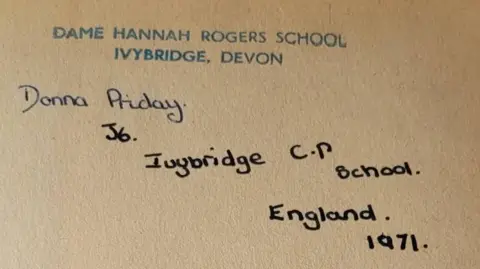 DAME HANNAH ROGERS SCHOOL
IVYBRIDGE, DEVON
Donna Priday.
J6.
Ivybridge C.P
School.
England.
1971.